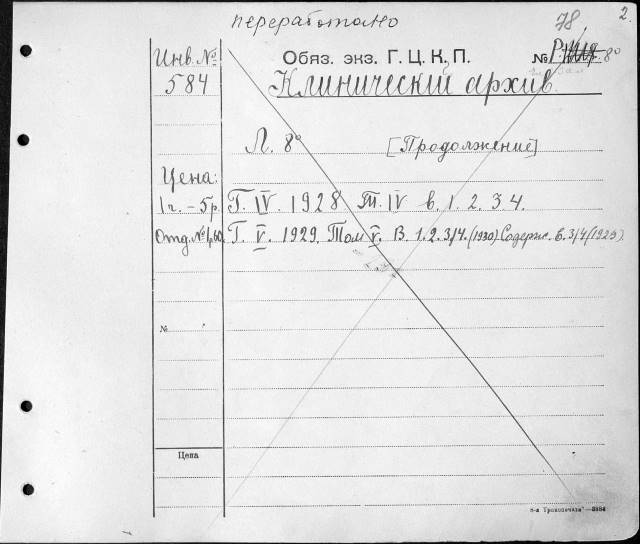 переработано
78
2.
Инв. №
584
Обяз. экз. Г. Ц. К. П.
№ 8°
Клинический архив.
Л. 8°
[Продолжение]
Цена:
1 г. – 5 р.
Г. IV. 1928 Т. IV в. 1. 2. 3. 4.
Отд. № 1,60.
Г. V. 1929. Том V. В. 1. 2. 3/4. (1930) Содерж. в. 3/4 (1929).
№
Цена